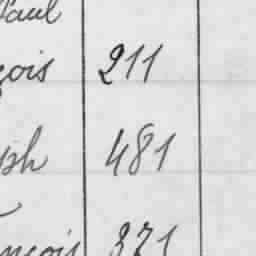 Paul
çois 211
ph 481
nçois 371